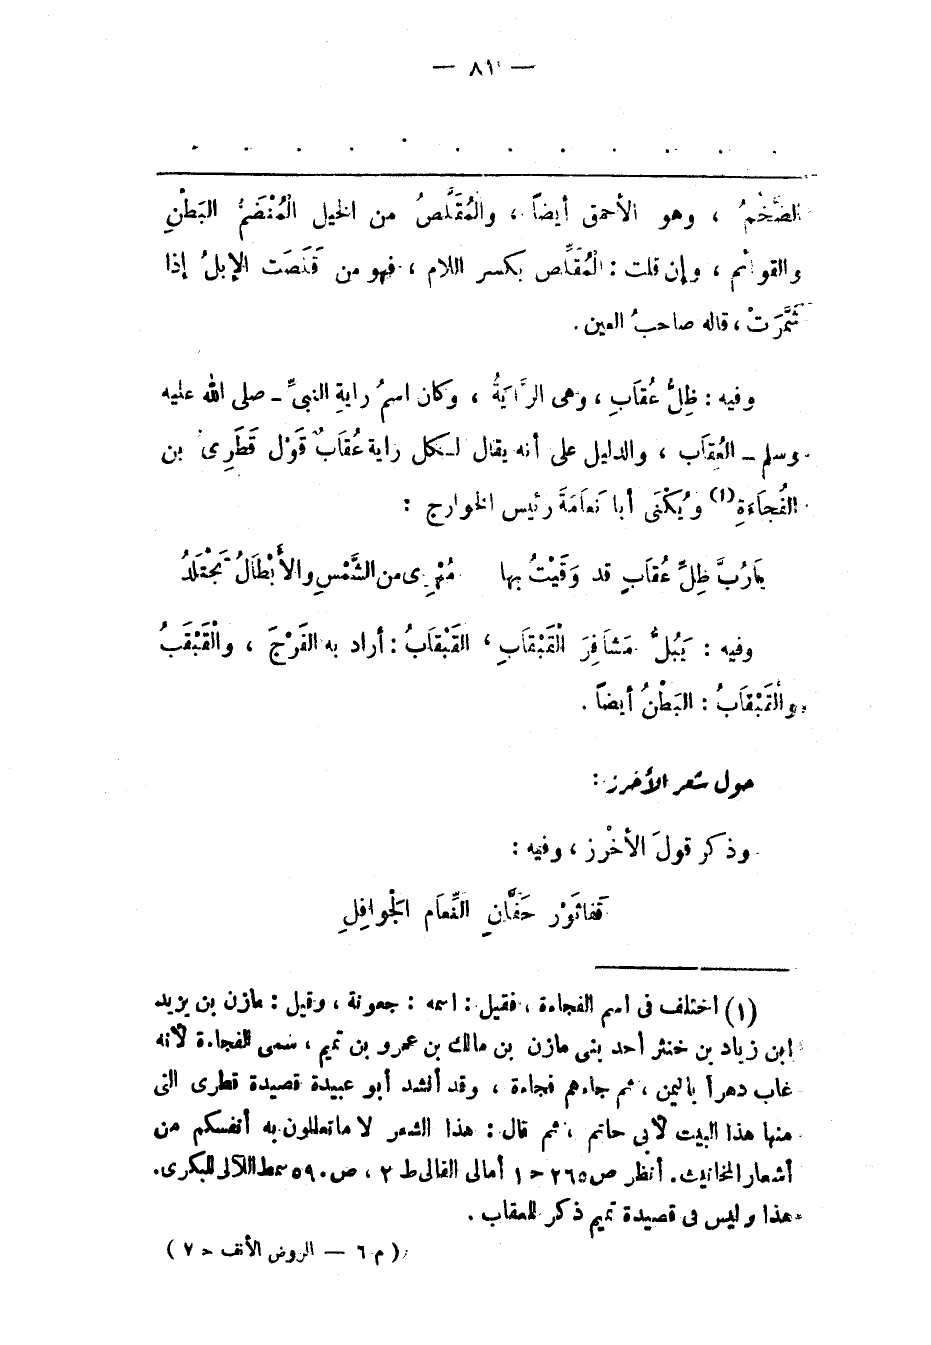 — ٨١ —
الضَّخْمُ ، وهو الأحمق أيضاً ، والمُقَلَّصُ من الخيل الْمُنْضَمُّ البَطْنِ
والقوائم ، وإن قلت : الْمُقَلِّص بكسر اللام ، فهو من قَلَصَت الإبلُ إذا
شَمَّرَتْ ، قاله صاحبُ العين .
وفيه : ظِلُّ عُقَابِ ، وهى الرَّايَةُ ، وكان اسمُ رايةِ النبىِّ ـ صلى الله عليه
وسلم ـ العُقَاب ، والدليل على أنه يقال لـكل راية عُقَابٌ قَوْل قَطَرِى بن
الفُجاَءَةِ (١) ويُكْنَى أبا نَعَامَةَ رئيس الخوارج :
يَارُبَّ ظِلِّ عُقَابٍ قد وَقَيْتُ بها مُهْرِى من الشَّمْسِ والأَبْطَالُ تَجْتَلِدُ
وفيه : يَبُلُّ مَشَافِرَ الْقَبْقَابِ ، القَبْقَابُ : أراد به الفَرْجَ ، والْقَبْقَبُ
والقَبْقَابُ : البَطْنُ أيضاً .
حول شعر الأخرز :
وذكر قولَ الأخْرز ، وفيه :
قفاثَوْر حَفَّانِ النَّعَام الْجوافِلِ
(١) اختلف فى اسم الفجاءة ، فقيل : اسمه : جعونة ، وقيل : مازن بن يزيد
ابن زياد بن خنثر أحد بنى مازن بن مالك بن عمرو بن تميم ، سمى الفجاءة لأنه
غاب دهراً باليمن ، ثم جاءهم فجاءة ، وقد أنشد أبو عبيدة قصيدة قطرى التى
منها هذا البيت لأبى حاتم ، ثم قال : هذا الشعر لا ماتعللون به أنفسكم من
أشعار المخانيث . أنظر ص ٢٦٥ ح ١ أمالى القالى ط ٢ ، ص ٥٩٠ سمط اللآلى للبكرى .
هذا وليس فى قصيدة تميم ذكر للعقاب .
( م ٦ — الروض الأنف ح ٧ )